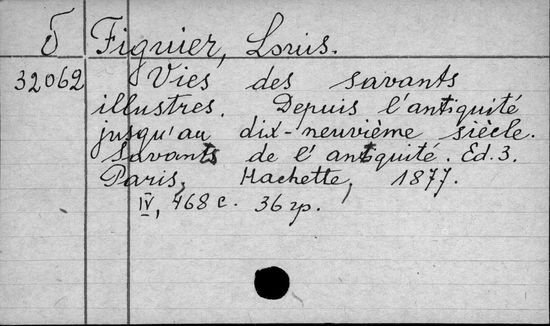 Б Figuier, Louis.
32062 Vies des savants
illustres. Depuis l'antiquité
jusqu'au dix-neuvième siècle.
Savants de l'antiquité. Ed. 3.
Paris, Hachette, 1877.
IV, 468 c. 36 гр.